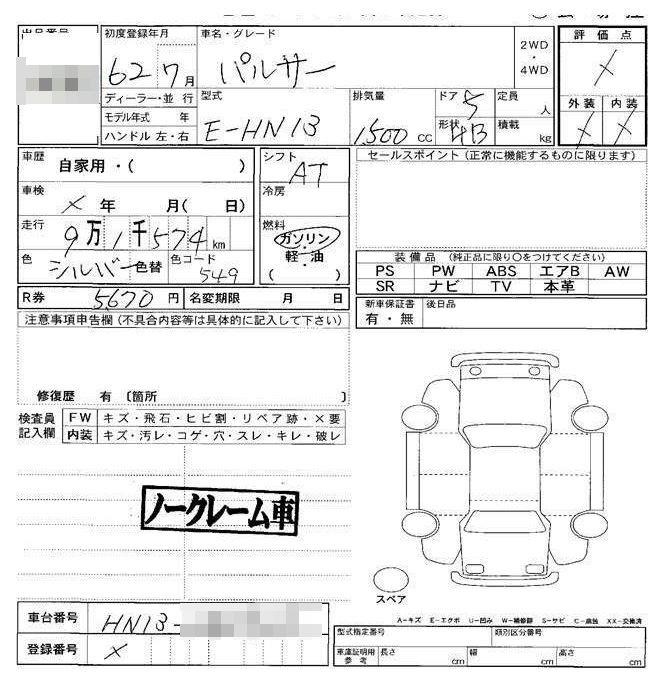 出品番号
初度登録年月 車名・グレード
2WD
・
4WD
評価点
62 7月 パルサー ×
ディーラー・並行 型式 排気量 ドア 5 定員 人
外装 内装
モデル年式 年
ハンドル 左・右 E-HN13 1500 CC 形状 4B 積載 kg × ×
車歴 自家用・( )
シフト AT
セールスポイント(正常に機能するものに限ります)
車検 × 年 月( 日)
冷房
走行 9万1千574km
燃料 ガソリン・軽・油 ( )
色 シルバー 色替 色コード 549
装備品 (純正品に限り○をつけてください)
PS PW ABS エアB AW
SR ナビ TV 本革
R券 5670円 名変期限 月 日
新車保証書 有・無 後日品
注意事項申告欄(不具合内容等は具体的に記入して下さい)
修復歴 有 〔箇所 〕
検査員記入欄
FW キズ・飛石・ヒビ割・リペア跡・×要
内装 キズ・汚レ・コゲ・穴・スレ・キレ・破レ
ノークレーム車
スペア
A-キズ E-エクボ U-凹み W-補修跡 S-サビ C-腐蝕 XX-交換済
車台番号 HN13-
登録番号 ×
型式指定番号 類別区分番号
車庫証明用参考 長さ cm 幅 cm 高さ cm